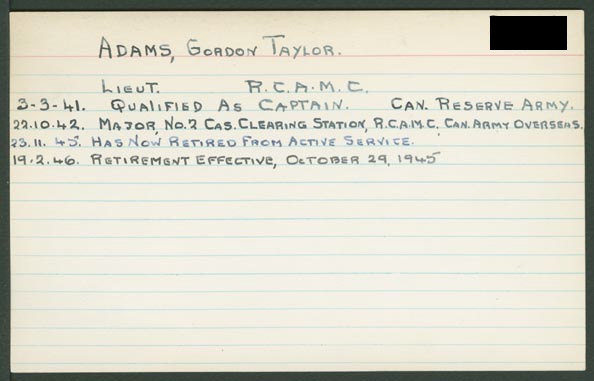 ADAMS, GORDON TAYLOR.
LIEUT. R.C.A.M.C.
3-3-41. QUALIFIED AS CAPTAIN. CAN. RESERVE ARMY.
22.10.42. MAJOR, NO.2 CAS. CLEARING STATION, R.C.A.M.C. CAN. ARMY OVERSEAS.
23.11.45. HAS NOW RETIRED FROM ACTIVE SERVICE.
19.2.46. RETIREMENT EFFECTIVE, OCTOBER 29, 1945